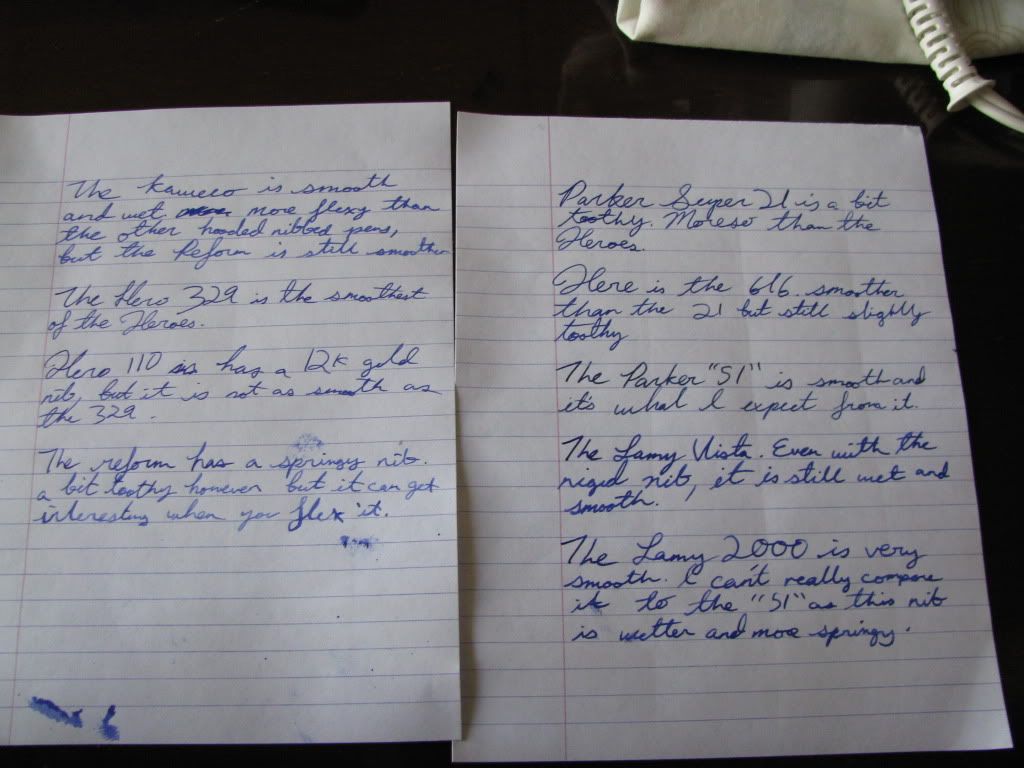 The Kaweco is smooth
and wet more flexy than
the other hooded nibbed pens,
but the Reform is still smoother
The Hero 329 is the smoothest
of the Heroes.
Hero 110 has a 12k gold
nib, but it is not as smooth as
the 329.
The reform has a springy nib.
a bit toothy however but it can get
interesting when you flex it.
Parker Super 21 is a bit
toothy. Moreso than the
Heroes.
Here is the 616. smoother
than the 21 but still slightly
toothy
The Parker "51" is smooth and
it's what I expect from it.
The Lamy Vista. Even with the
rigid nib, it is still wet and
smooth.
The Lamy 2000 is very
smooth. I can't really compare
it to the "51" as this nib
is wetter and more springy.